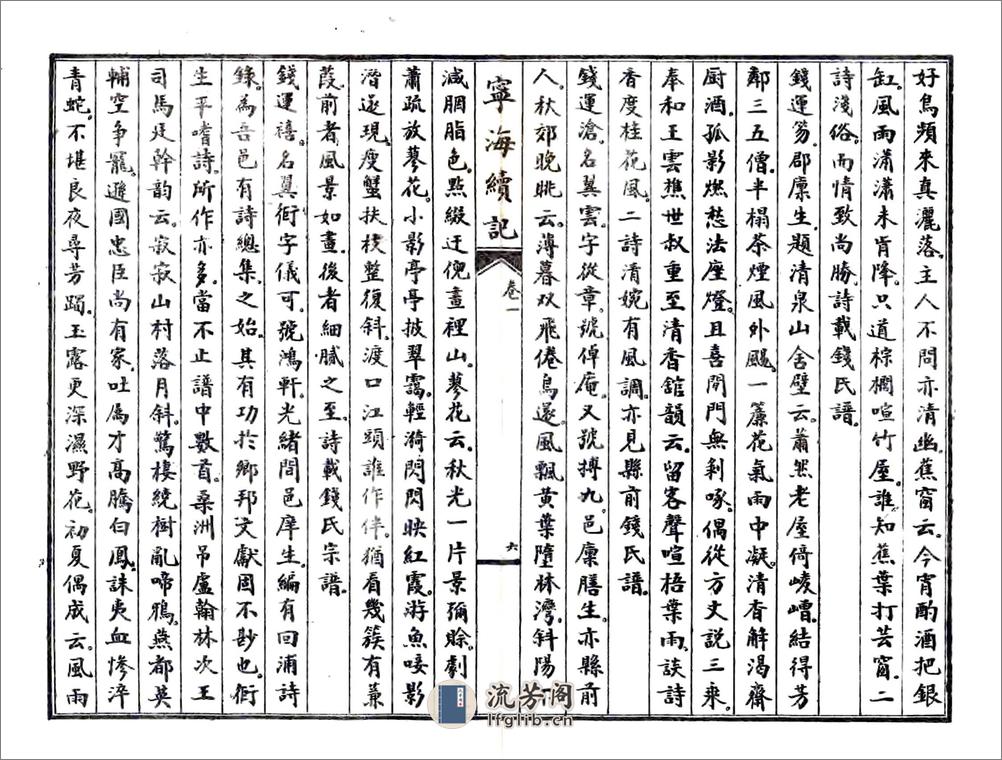 好鳥頻來真灑落。主人不問亦清幽。蕉窗云。今宵酌酒把銀
缸。風雨瀟瀟未肯降。只道棕櫚喧竹屋。誰知蕉葉打芸窗。二
詩淺俗。而情致尚勝。詩載錢氏譜。
錢運芴。郡廩生。題清泉山舍壁云。蕭然老屋倚崚嶒。結得芳
鄰三五僧。半榻茶煙風外颺。一簾花氣雨中凝。清香解渴齋
厨酒。孤影燃愁法座燈。且喜閉門無剥啄。偶從方丈説三乘。
奉和王雲樵世叔重至清香舘韻云。留客聲喧梧葉雨。談詩
香度桂花風。二詩清婉有風調。亦見縣前錢氏譜。
錢運滄。名翼雲。字從章。號倬庵。又號搏九。邑廩膳生。亦縣前
人。秋郊晚眺云。薄暮双飛倦鳥還。風飄黄葉墮林灣。斜陽
寧海續記
卷一
六
減胭脂色。點綴迂倪畫裡山。蓼花云。秋光一片景彌賖。劇
蕭疏放蓼花。小影亭亭披翠靄。輕漪閃閃映紅霞。游魚唼影
潛還現。瘦蟹扶枝整復斜。渡口江頭誰作伴。猶看幾簇有蒹
葭。前者風景如畫。後者細膩之至。詩載錢氏宗譜。
錢運禧。名翼衙。字儀可。號鴻軒。光緒間邑庠生。編有回浦詩
錄。為吾邑有詩總集。之始。其有功於鄉邦文獻固不尠也。衙
生平嗜詩。所作亦多。當不止譜中數首。桑洲吊盧翰林次王
司馬廷幹韵云。寂寂山村落月斜。驚棲繞樹亂啼鴉。燕都英
輔空爭罷。遜國忠臣尚有家。吐鳥才高騰白鳳。誅夷血慘淬
青蛇。不堪良夜尋芳躅。玉露更深濕野花。初夏偶成云。風雨
流芳阁
lfglib.cn